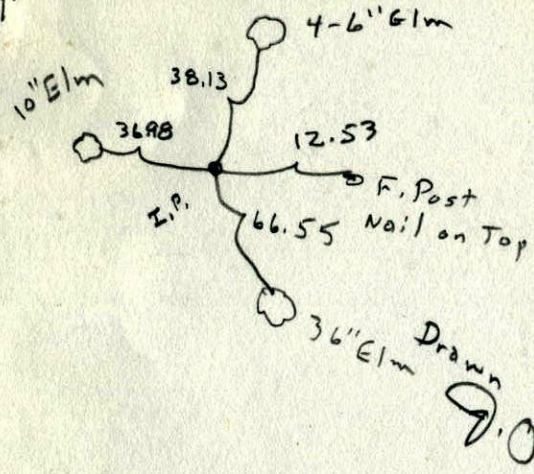 4-6" Elm
38.13
10" Elm
3698
12.53
F. Post
Nail on Top
I.P.
66.55
36" Elm
Drawn